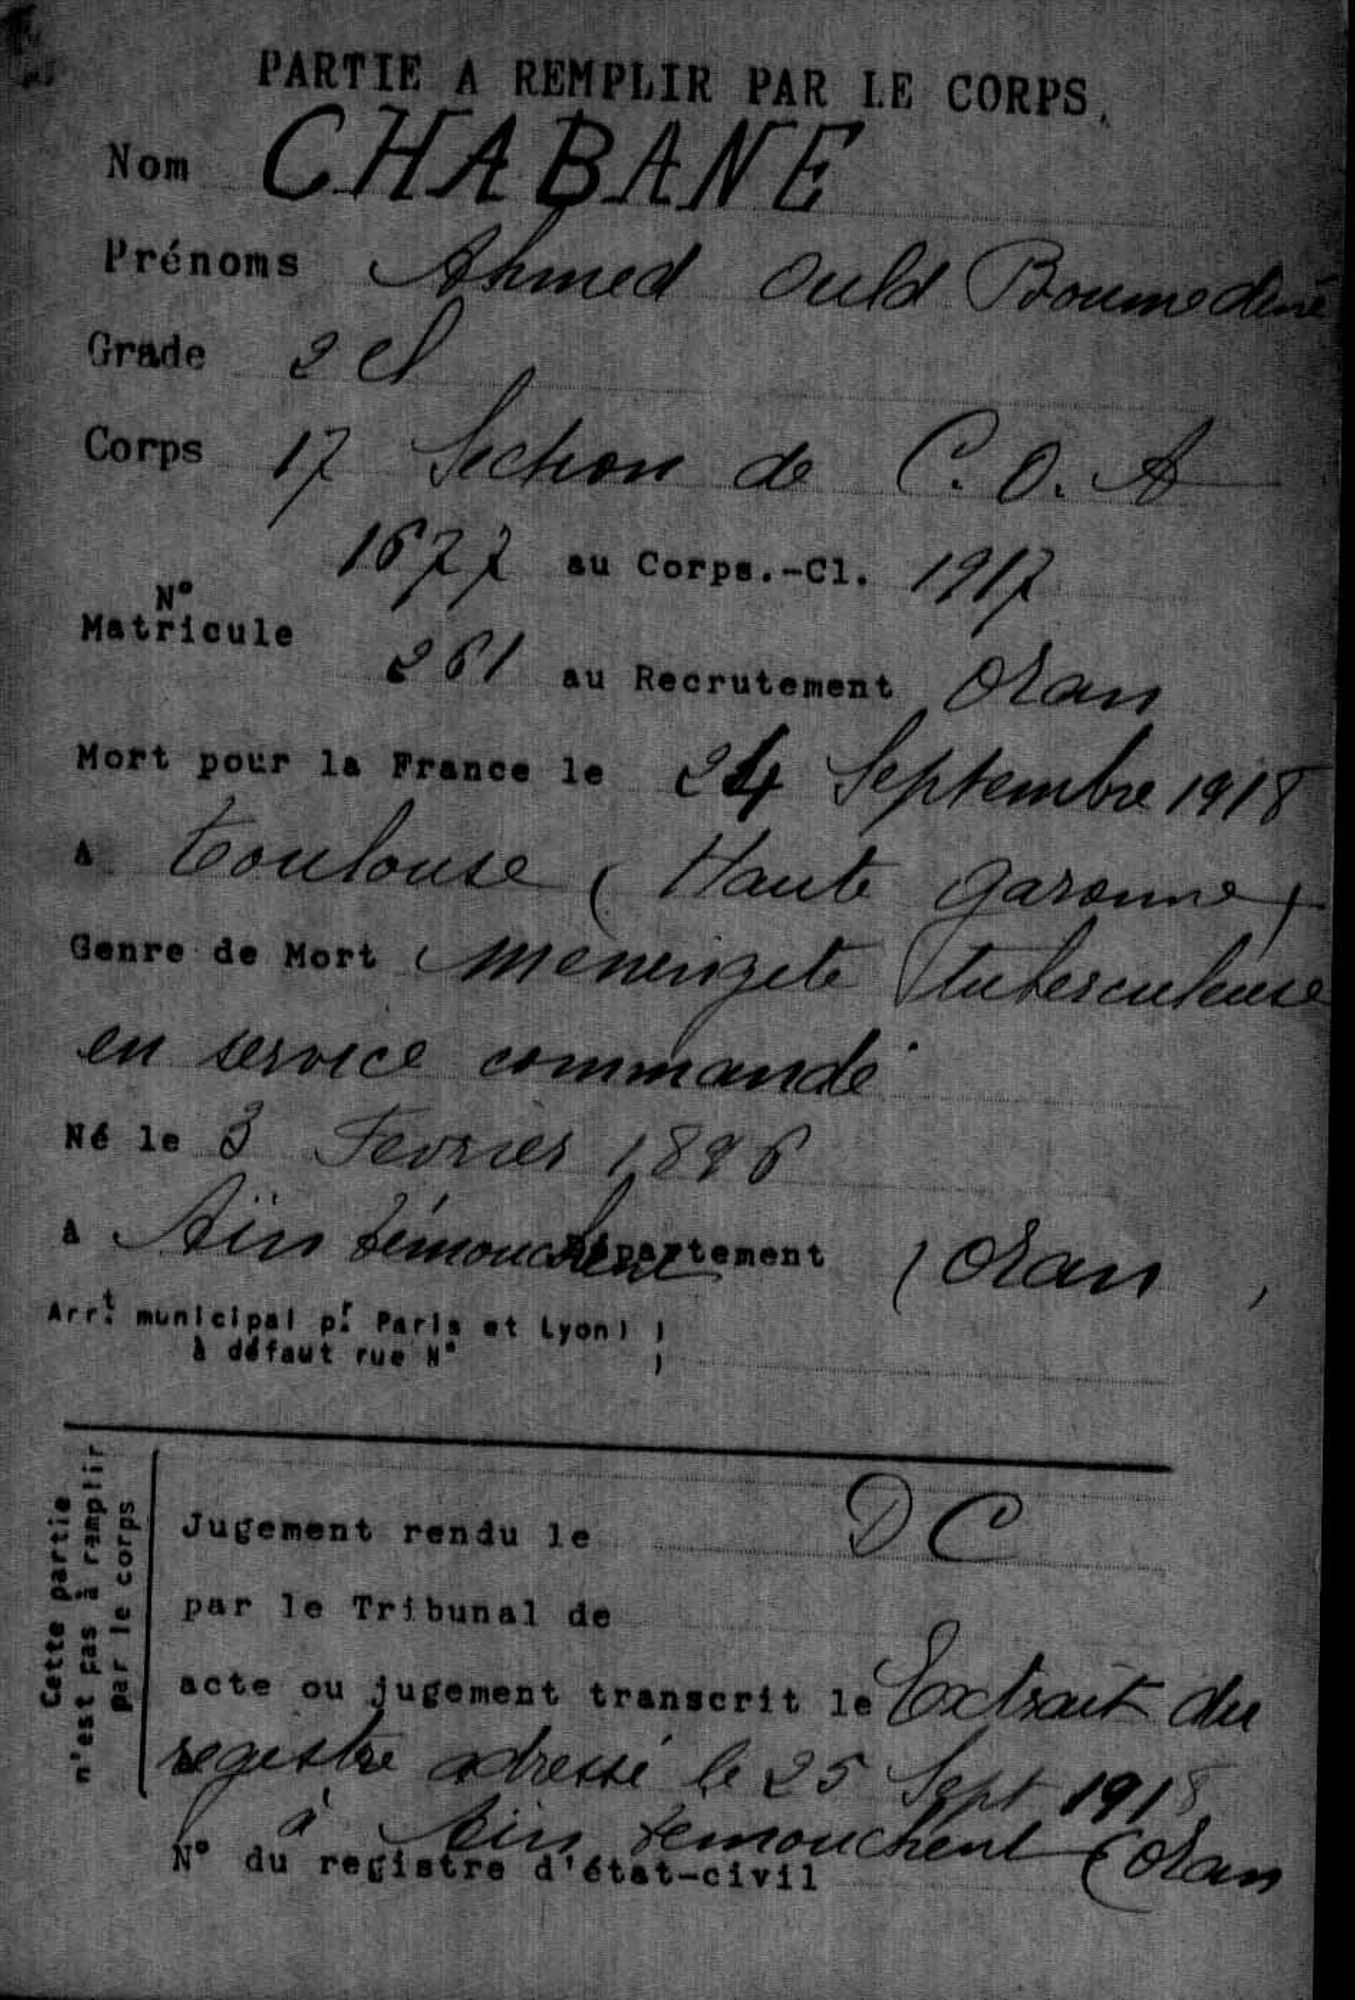 PARTIE A REMPLIR PAR LE CORPS.
Nom CHABANE
Prénoms Ahmed Ould Boumediné
Grade 2 Cl
Corps 17 Section de C. O. A
1677 au Corps.-Cl. 1917
N°
Matricule
261 au Recrutement Oran
Mort pour la France le 24 Septembre 1918
à Toulouse (Haute Garonne)
Genre de Mort Menengete tuberculeuse
en service commandé
Né le 3 Fevrier 1896
à Aïn Témouchent Département (Oran)
Arrt municipal pr Paris et Lyon)
à défaut rue N°
Cette partie
n'est pas à remplir
par le corps
Jugement rendu le DC
par le Tribunal de
acte ou jugement transcrit le Extrait du
registre adressé le 25 Sept 1918
à Aïn Temouchent (Oran
N° du registre d'état-civil